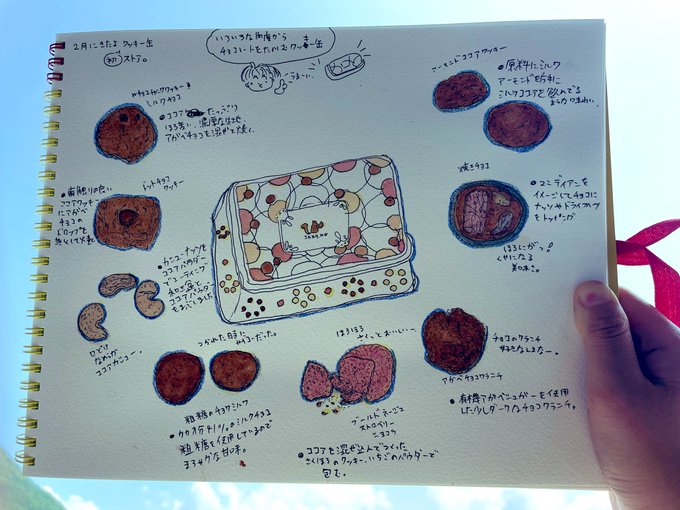 2月にきたよ クッキー缶
初 ストア。
いろいろな角度から
チョコレートをたのしむクッキー缶
うまーい。
Wチョコチャンククッキー
ミルクチョコ
●ココアたっぷり
ほろ苦い、濃厚な生地
アガベチョコを混ぜて焼く。
ドットチョコ
クッキー
●歯触りの良い
ココアクッキー
にアガベ
チョコの
ドロップを
カシューナッツを
ココアパウダー
でコーティング
ココアパウダー
口どけ
なめらか
ココアカシュー。
アーモンドココアクッキー
●原料にミルク
アーモンド粉末に
ミルクココアを飲んでる
ような味わい。
焼きチョコ
●マンディアンを
イメージしてチョコに
ナッツやドライフルーツ
をトッピング
ほろにがっ!
くせになる
美味。
つかれた日に
粗糖のチョコミルク
●カカオ分41%のミルクチョコ
粗糖を使用しているので
まろやかな甘味。
ほろほろ
さくっとおいしい〜。
ブールドネージュ
ストロベリー
ショコラ
●ココアを混ぜ込んでつくった
さくほろのクッキー、いちごのパウダーで
包む。
チョコのクランチ
好きなしよなー。
アガベチョコクランチ
●有機アガベシュガーを使用
した少しダークなチョコクランチ。